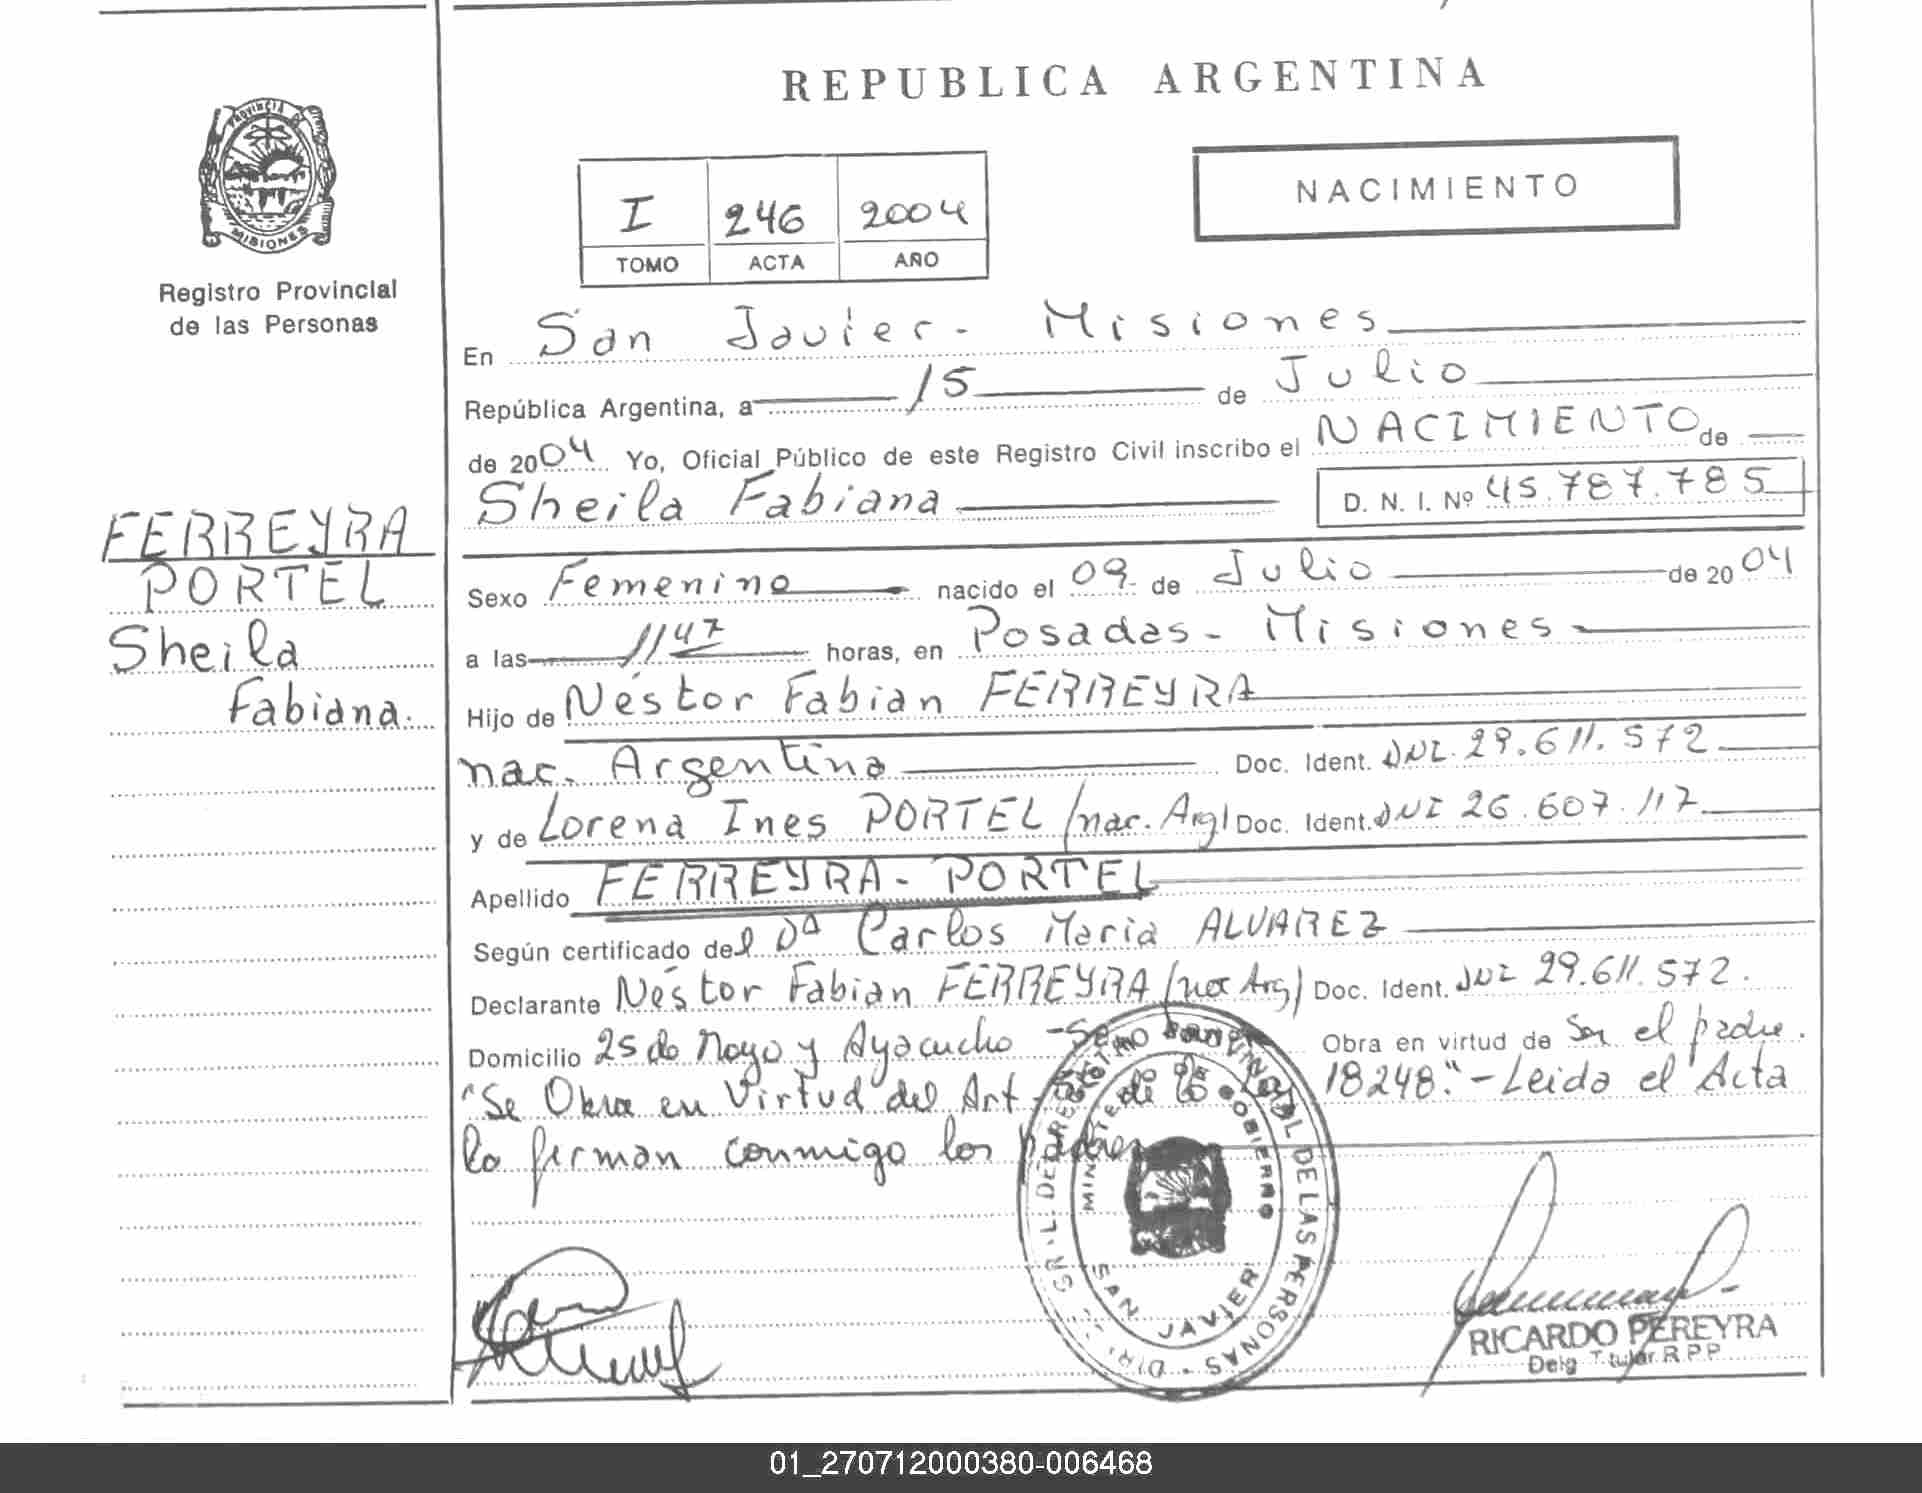 REPUBLICA ARGENTINA
PROVINCIA DE
MISIONES
Registro Provincial
de las Personas
I 246 2004
TOMO ACTA AÑO
NACIMIENTO
FERREYRA
PORTEL
Sheila
Fabiana.
En San Javier - Misiones
República Argentina, a 15 de Julio
de 2004 Yo, Oficial Público de este Registro Civil inscribo el NACIMIENTO de
Sheila Fabiana D. N. I. Nº 45.787.785
Sexo Femenino nacido el 09 de Julio de 2004
a las 1147 horas, en Posadas - Misiones
Hijo de Néstor Fabian FERREYRA
nac. Argentina Doc. Ident. DNI. 29.611.572
y de Lorena Ines PORTEL (nac. Arg) Doc. Ident. DNI 26.607.117
Apellido FERREYRA - PORTEL
Según certificado del Dª Carlos Maria ALVAREZ
Declarante Néstor Fabian FERREYRA (nac Arg) Doc. Ident. DNI 29.611.572.
Domicilio 25 de Mayo y Ayacucho - Obra en virtud de Ser el padre.
"Se Obra en Virtud del Art. de la Ley 18248." - Leida el Acta
la firman conmigo los padres
REGISTRO PROVINCIAL DE LAS PERSONAS
MINISTERIO DE GOBIERNO
SAN JAVIER
RICARDO PEREYRA
Delg Titular R P P
01_270712000380-006468